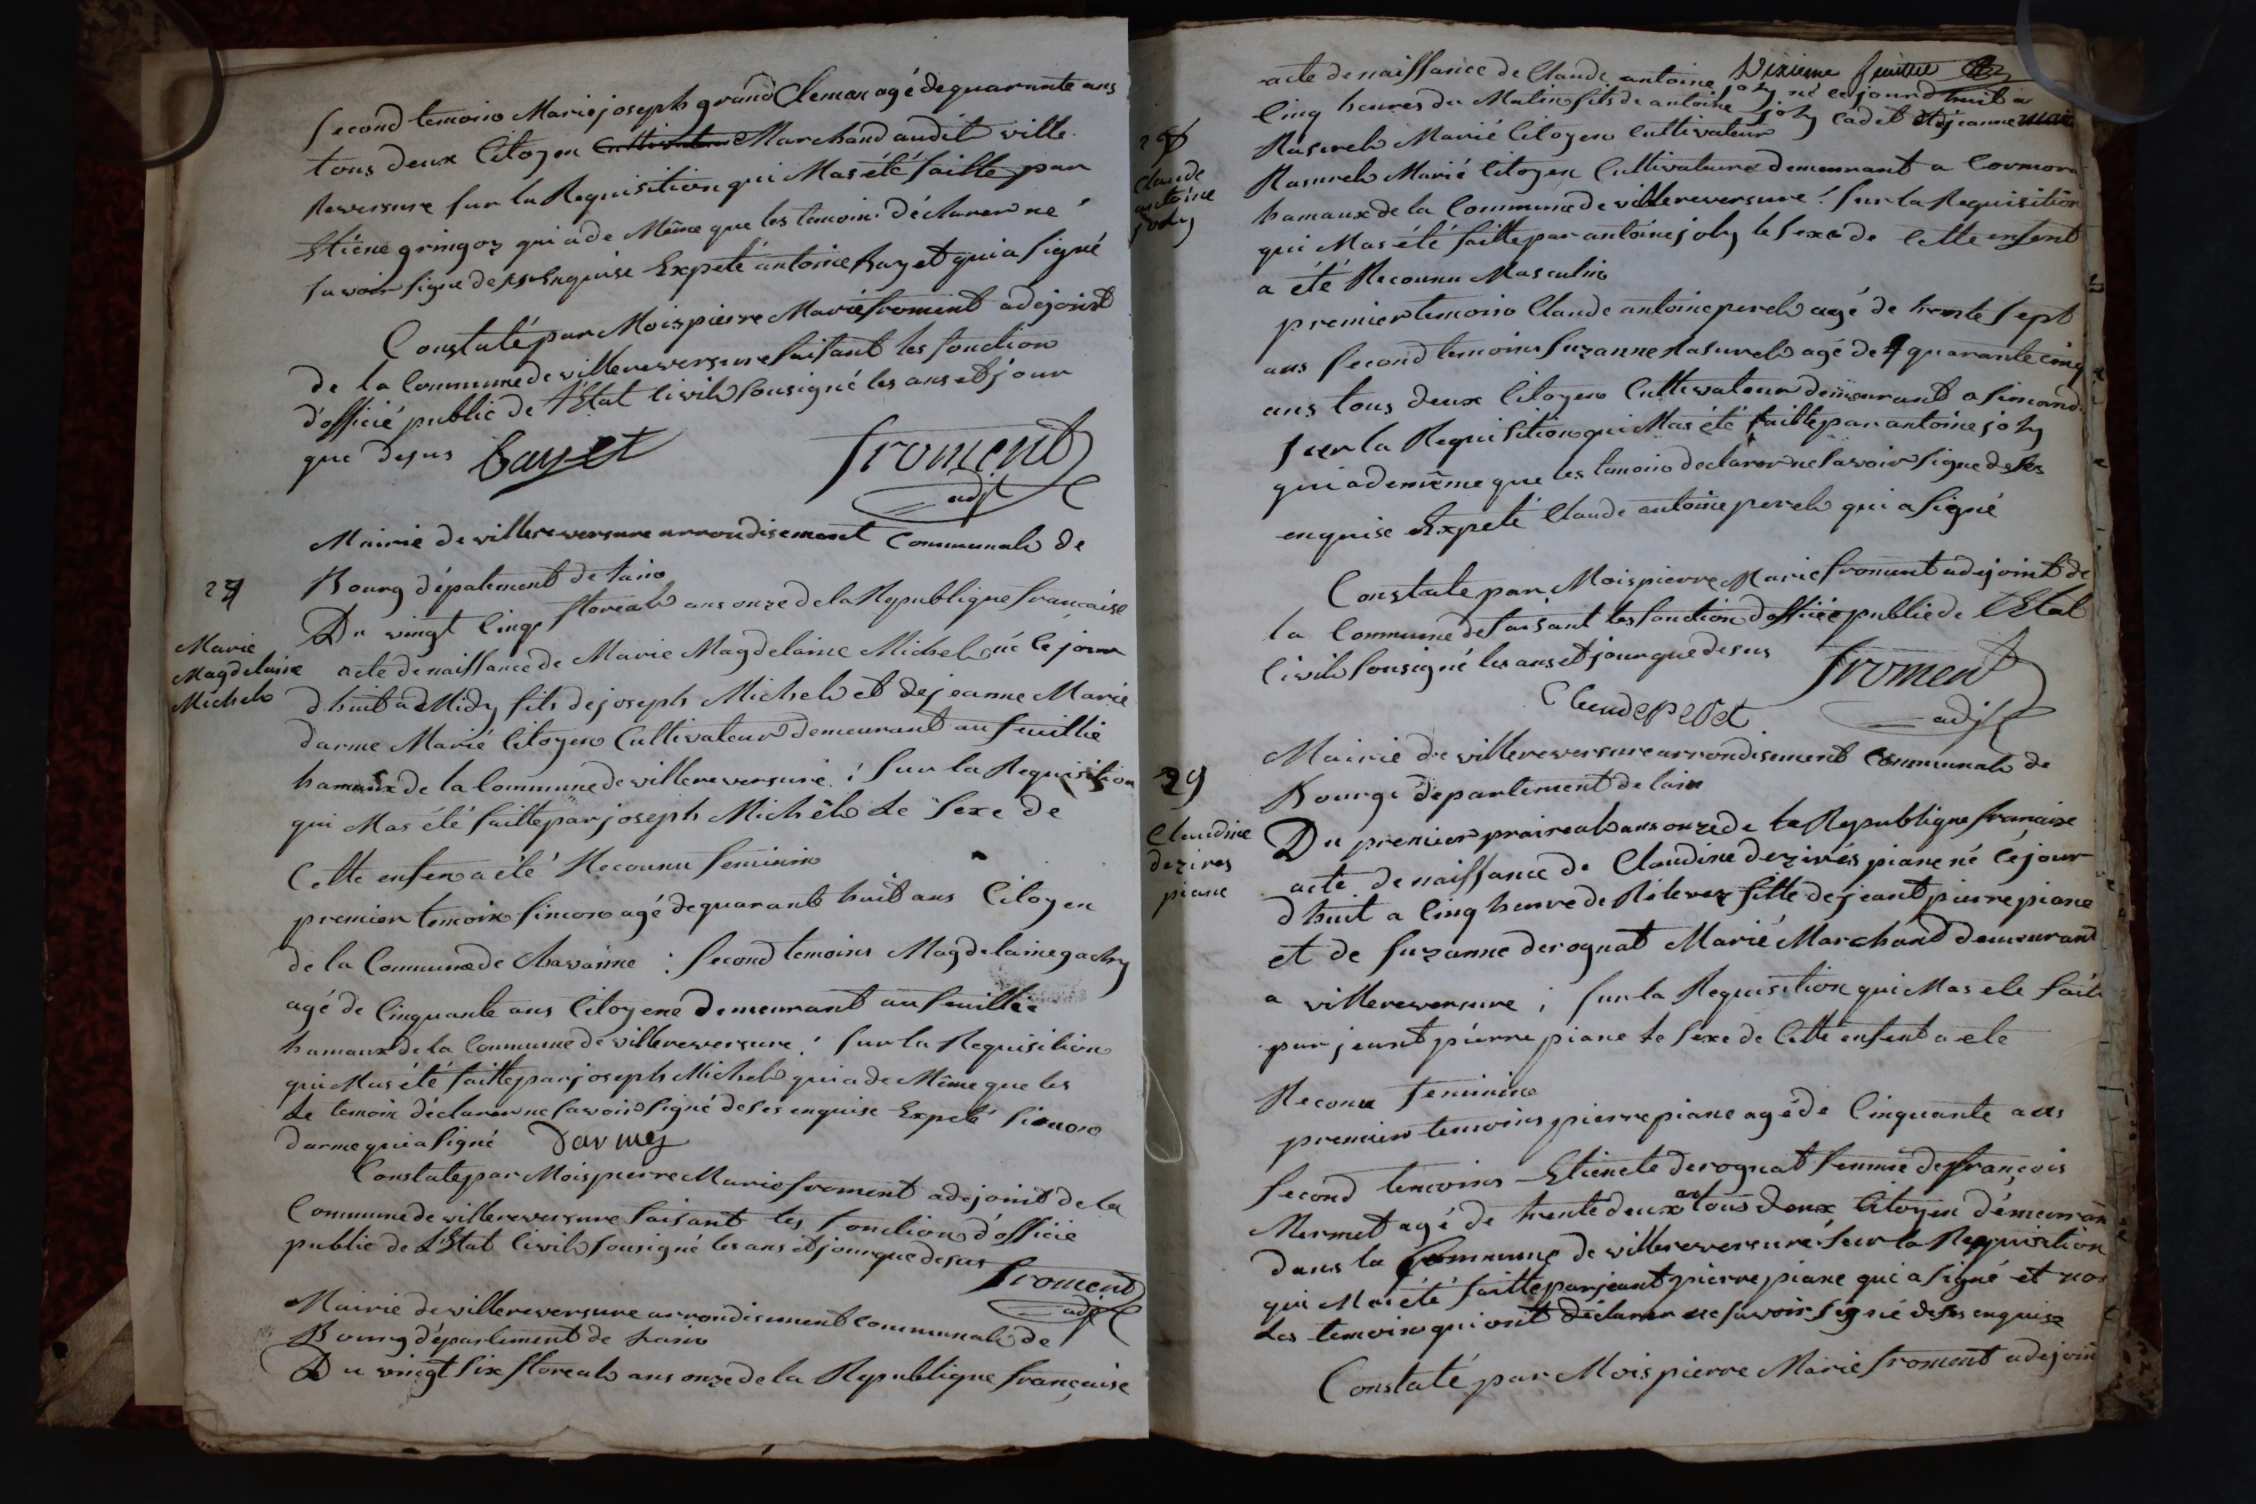 second temoins Marie joseph grand Clemen agé de quarante ans
tous deux Citoyen Cultivateur Marchand audit ville
Reversure sur la Requisition qui Mas été faitte par
Etiéne gringoz qui a de Même que les temoins déclarer ne
savoir signe de ses enquise Expeté antoine Bayet qui a signé
Constaté par Mois pierre Marie froment adejoint
de la Commune de villereversure faisant les fonction
d'officié public de l'Etat Civil sousigné les ans et jour
que desus Bayet froment
adjt
Mairie de villereversure arrondisement Communale de
Bourg dépatement de Lain
27
Du vingt Cinq floreal ans onze de la Republique francaise
Marie
Magdelaine
Michel
acte de naissance de Marie Magdelaine Michel né Ce jour
d huit a Midy fils de joseph Michel et de jeanne Marie
darme Marié Citoyen Cultivateur demeurant au feuillie
hamaux de la Commune de villereversure : Sur la Requisition
qui Mas été faitte par joseph Michel Le Sexe de
Cette enfen a été Reconnu feminin
premier temoix simon agé de quarant huit ans Citoyen
de la Commune de Chavanne : second temoins Magdelaine gachy
agé de Cinquante ans Citoyene demeurant au feuillée
hamaux de la Commune de villereversure : Sur la Requisition
qui Mas été faitte par joseph Michel qui a de Même que les
Le temoin déclarer ne savoir signé de ses enquise Expeté Simon
darme qui a signé Darmey
Constate par Mois pierre Marie froment adejoint de la
Commune de villereversure faisant les fonction d'officié
public de L'Etat Civil sousigné les ans et jour que desus froment
adjt
Mairie de villereversure arrondisement Communale de
Bourg département de Lain
Du vingt six floreal ans onze de la Republique française
Dixieme feuillet
acte de naissance de Claude antoine joly né ce jourd huit a
Cinq heures du Matin fils de antoine joly cadet et de jeanne marie
28
Claude
antoine
joly
Rasurel Marié Citoyen Cultivateur
Rasurel Marié Citoyen Cultivateure demeurant a Cormora
hamaux de la Commune de villereversure : Sur la Requisition
qui Mas été faitte par antoine joly le sexe de Cette enfent
a été Reconnu Masculin
premier temoin Claude antoine perel agé de trente sept
ans second temoins suzanne Rasurel agé de quarante cinq
ans tous deux Citoyen Cultivateur demeurant a simand
sur la Requisition qui Mas été faitte par antoine joly
qui a de même que les temoin declarer ne savoir signe de ses
enquise Expeté Claude antoine perel qui a signé
Constate par Mois pierre Marie froment adejoint de
la Commune de faisant les fonction d'officié public de l'Etat
Civil sousigné les ans et jour que desus froment
Claude peret adjt
Mairie de villereversure arrondisement Communale de
29
Bourg departement de lain
Claudine
dezires
piane
Du premier praireal ans onze de la Republique francaise
acte de naissance de Claudine dezirés piane né Cejour
d huit a Cinq heure de Relevez fille de jeant pierre piane
et de suzanne derognat Marié Marchand demeurant
a villereversure ; sur la Requisition qui Mas ete fait
par jeant piérre piane le sexe de Cette enfent a ete
Reconu feminin
premier temoins pierre piane agé de Cinquante ans
second temoins Etienete derognat femme de françois
Mermet agé de trente deux ans tous deux Citoyen démeurant
dans la Commune de villereversure sur la Requisition
qui Mas été faitte par jeant pierre piane qui a signé et non
Les temoins qui ont déclarer ne savoir signé de ses enquise
Constaté par Mois pierre Marie froment adejoin